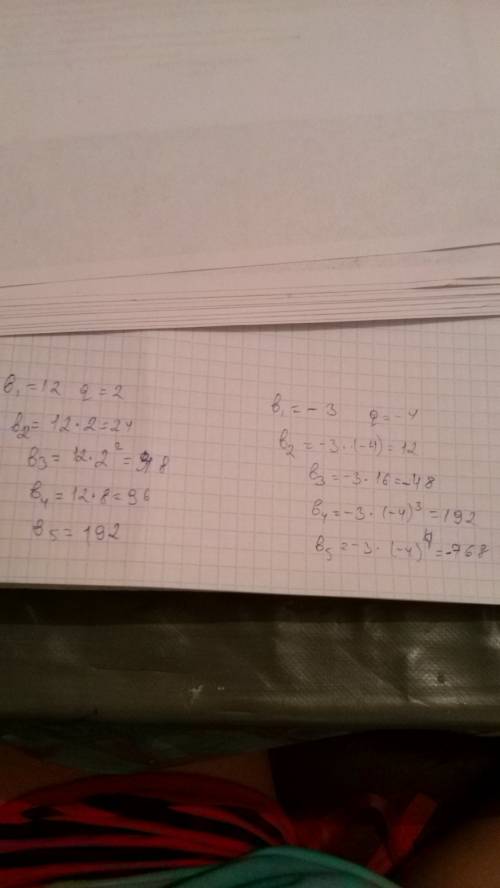 в₁ = 12 q = 2
в₂ = 12 · 2 = 24
в₃ = 12 · 2² = 48
в₄ = 12 · 8 = 96
в₅ = 192
в₁ = -3 q = -4
в₂ = -3 · (-4) = 12
в₃ = -3 · 16 = -48
в₄ = -3 · (-4)³ = 192
в₅ = -3 · (-4)⁴ = -768